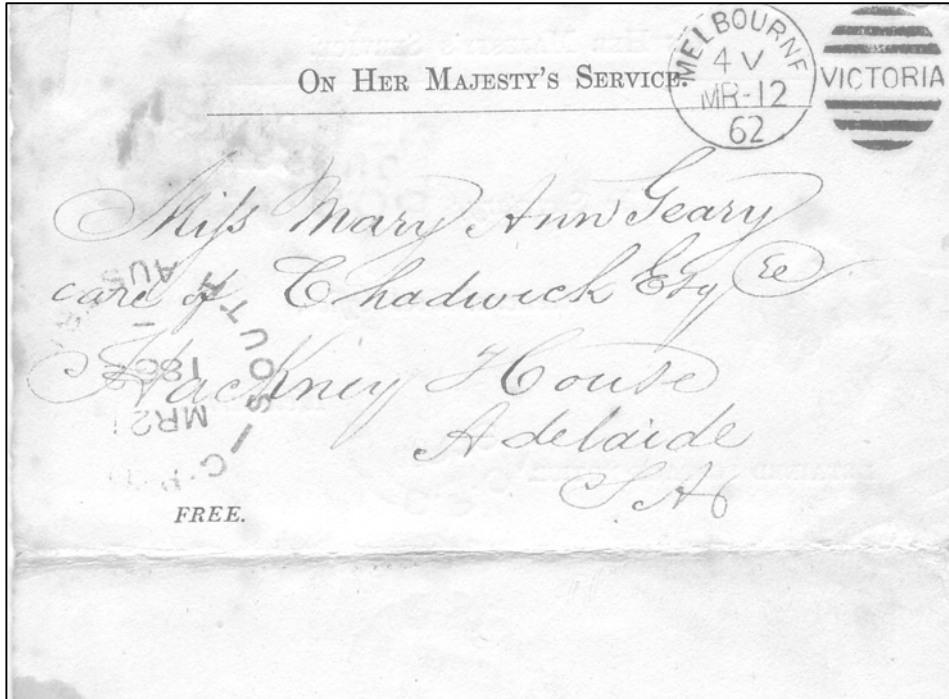 ON HER MAJESTY'S SERVICE.
MELBOURNE
4 V
MR-12
62
VICTORIA
Miss Mary Ann Geary
care of Chadwick Esqre
Hackney House
Adelaide
S A
SOUTH AUS
MR2
FREE.